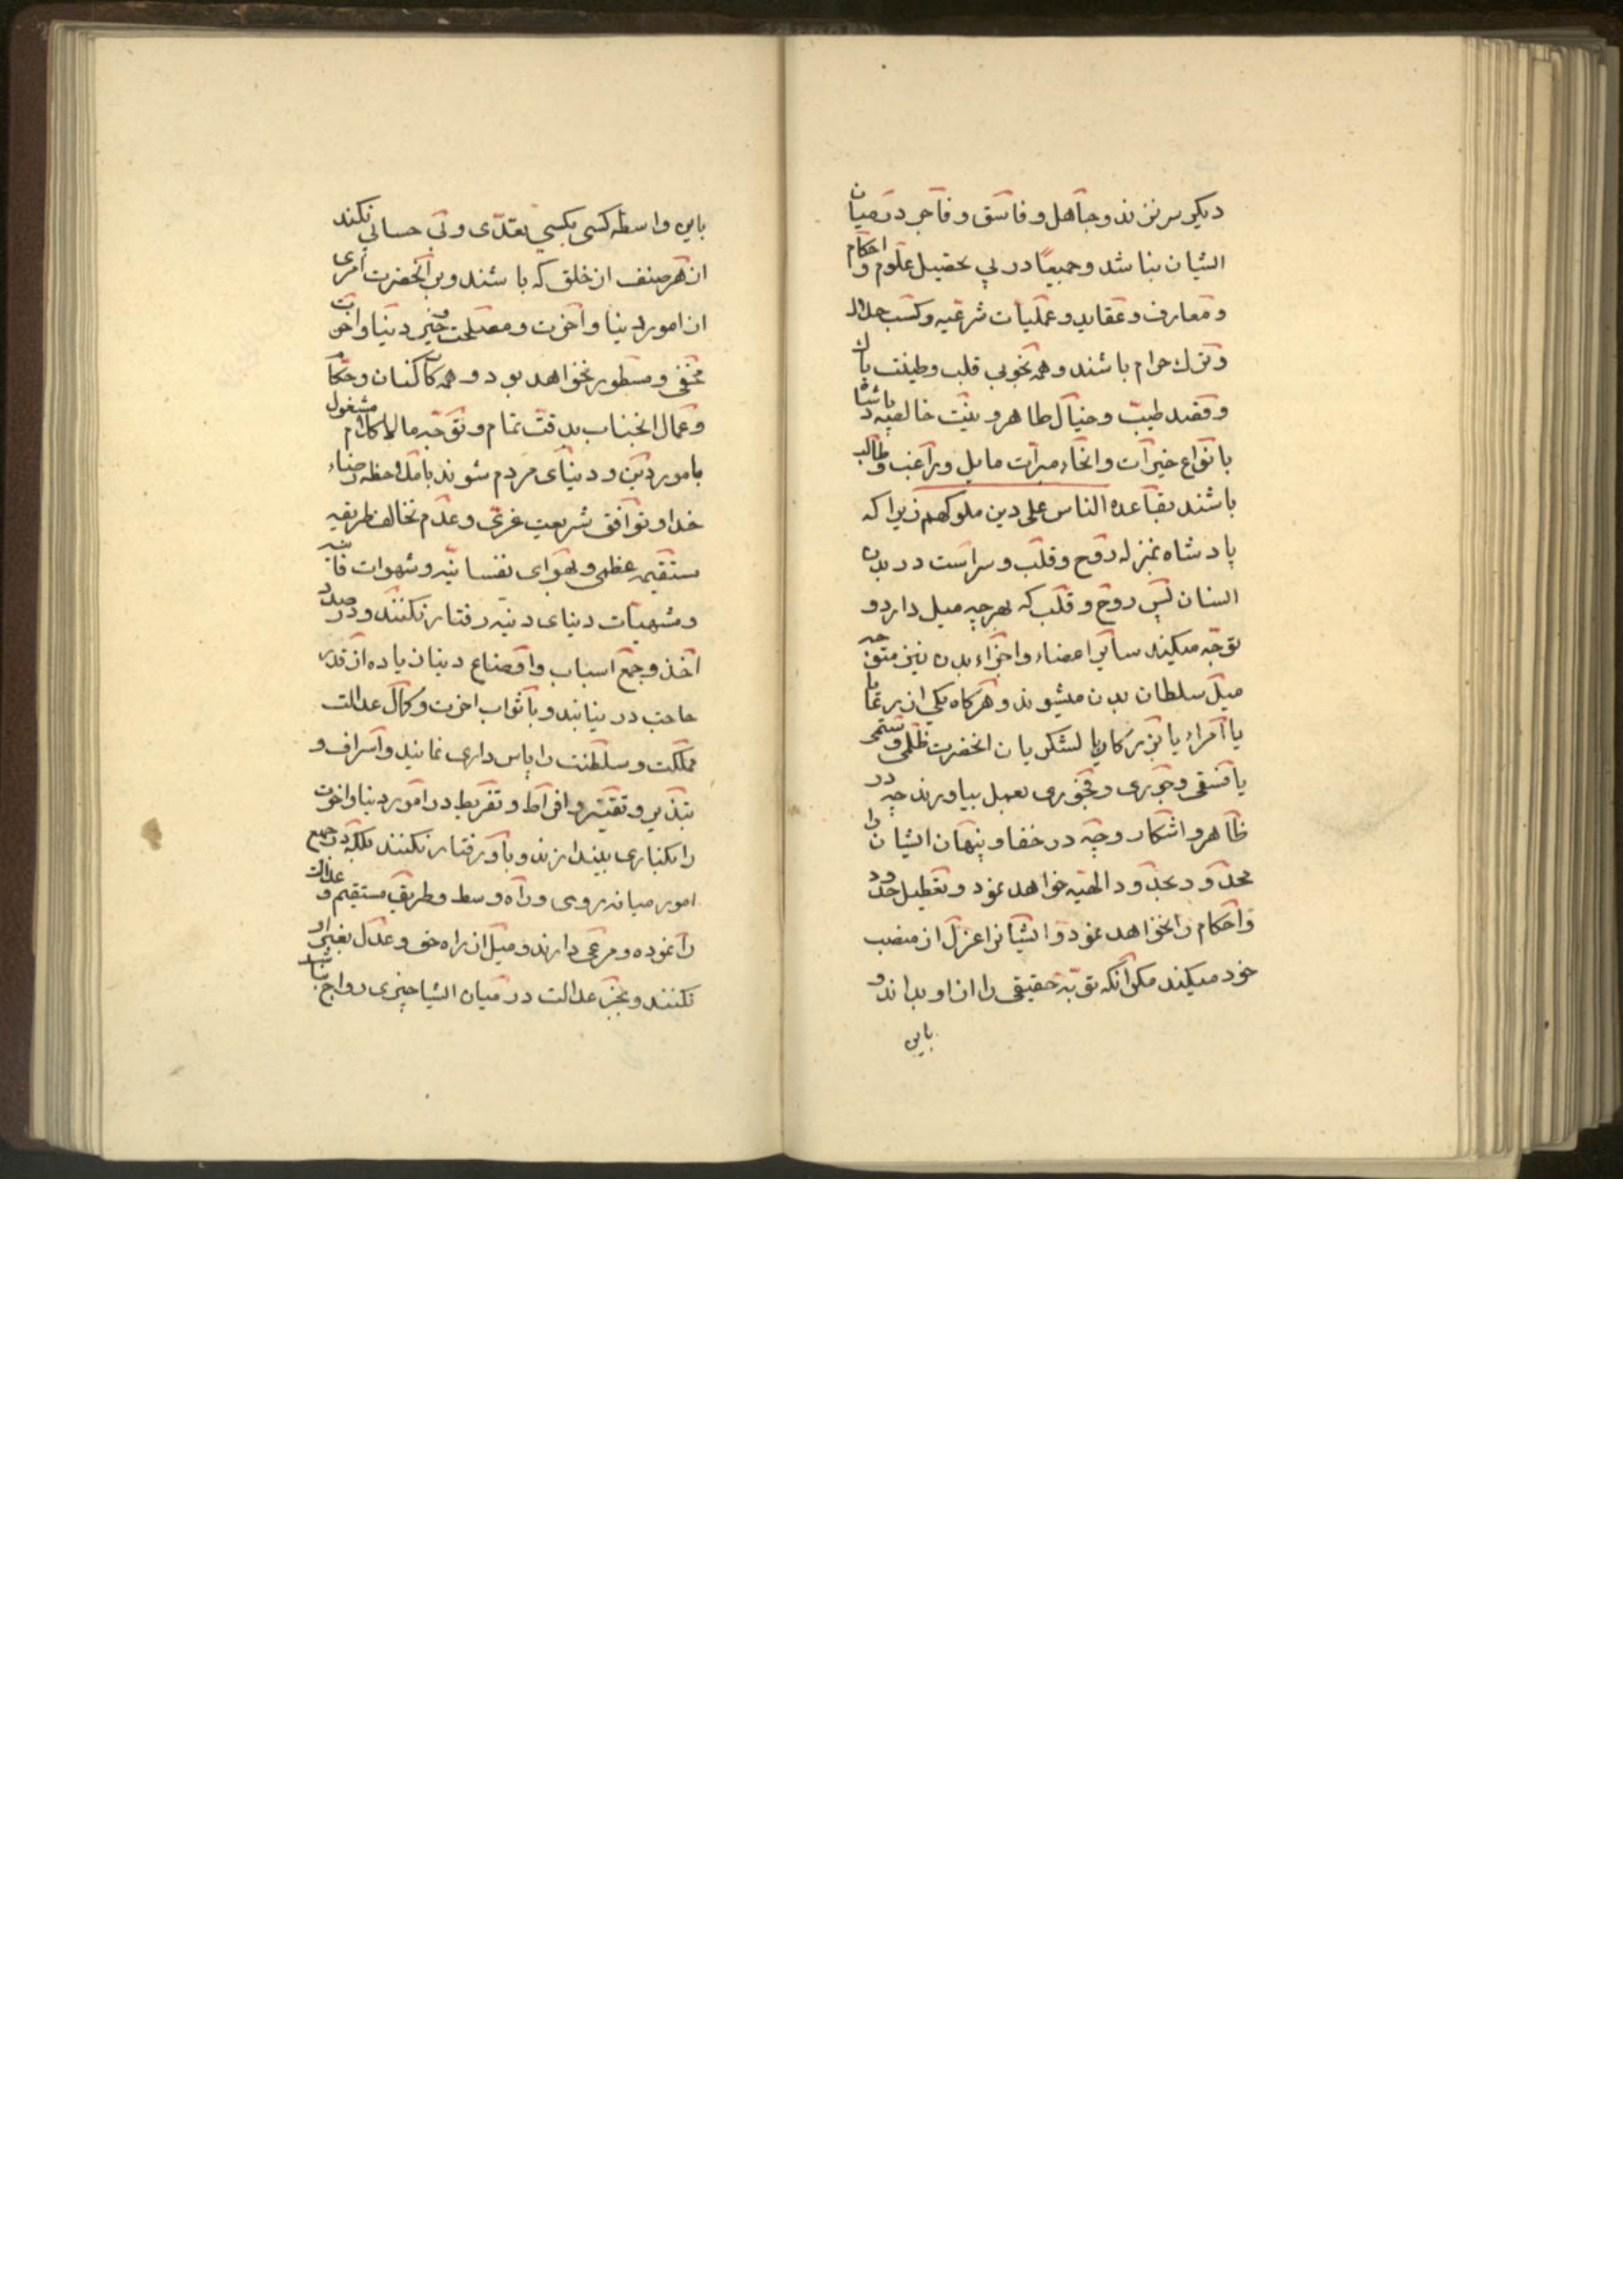 دیکر سر نزند و جاهل و فاسق و فاجر در میان
ایشان نباشد و جمیعا در پی تحصیل علوم و احکام
و معارف و عقاید و عملیات شرعیه و کسب حلال
و ترك حرام باشند و همه بخوبی قلب و طینت پاك
و قصد طیب و خیال طاهر و نیت خالصه باشند
بانواع خیرات و انحاء مبرات مایل و راغب و طالب
باشند بقاعده الناس علی دین ملوکهم زیرا که
پادشاه بمنزله روح و قلب و سر است در بدن
انسان پس روح و قلب که بهر چه میل دارد و
توجه میکند سایر اعضاء و اجزاء بدن نیز متوجه
میل سلطان بدن میشوند و هرکاه یکی از رعایا
یا امراء یا بزرکان یا لشکریان انحضرت ظلمی و ستمی
یا فسقی و جوری و فجوری بعمل بیاورند چه در
ظاهر و اشکار و چه در خفا و پنهان ایشان را
محدود بحدود الهیه خواهد نمود و تعطیل حدود
و احکام را نخواهد نمود و ایشانرا عزل از منصب
خود میکند مکر انکه توبه حقیقی را از او بداند و
باین
باین واسطه کسی بکسی تعدی و بی حسابی نکند
از هر صنف از خلق که باشند و بر انحضرت امری
از امور دنیا و آخرت و مصلحت و خیر دنیا و اخرت
مخفی و مسطور نخواهد بود و همه کارکنان و حکام
و عمال انجناب بدقت تمام و توجه مالاکلام مشغول
بامور دین و دنیای مردم شوند با ملاحظه رضاء
خدا و توافق شریعت غری و عدم تخالف طریقه
مستقیمه عظمی و بهوای نفسانیه و شهوات فانیه
و مشهیات دنیای دنیه رفتار نکنند و در صدد
اخذ و جمع اسباب و اوضاع دنیا زیاده از قدر
حاجت در نیایند و با ثواب اخرت و کمال عدالت
مملکت و سلطنت را پاس داری نمایند و اسراف و
تبذیر و تقتیر و افراط و تفریط در امور دنیا و اخرت
را بکناری بیندازند و باو رفتار نکنند بلکه در جمیع
امور میانه روی و راه وسط و طریق مستقیم و عدالت
را نموده و مرعی دارند و میل از راه حق و عدل بغیر او
نکنند و بجز عدالت در میان ایشا چیزی رواج نباشد